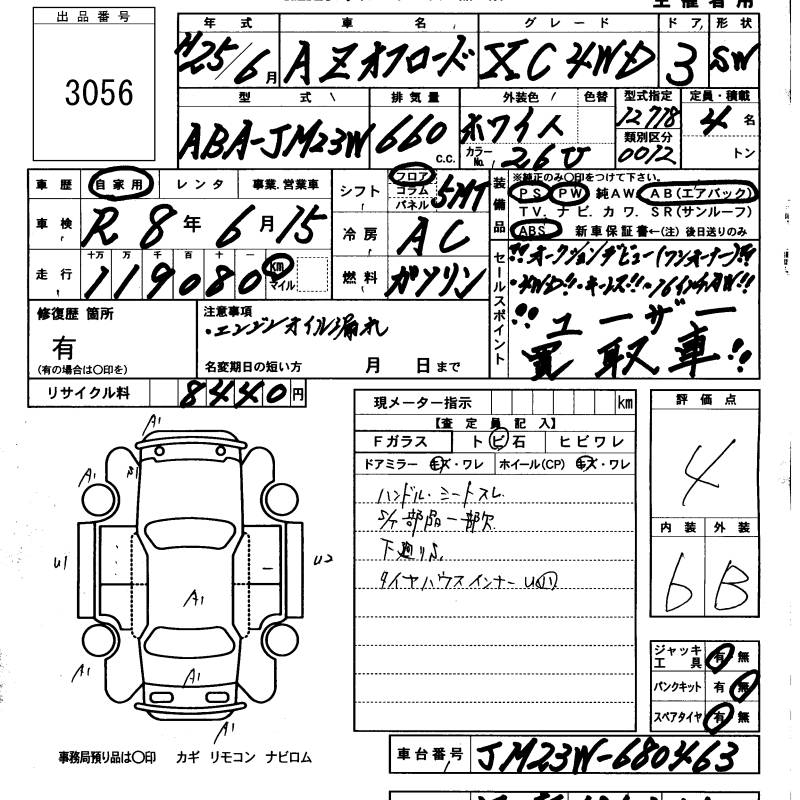 出品番号
3056
年式 車名 グレード ドア 形状
H25/6月 AZオフロード XC 4WD 3 SW
型式 排気量 外装色 色替 型式指定 定員・積載
ABA-JM23W 660 c.c. ホワイト 12778 4名
カラーNo. 26U 類別区分 0072 トン
車歴 自家用 レンタ 事業.営業車
シフト フロア コラム パネル 5MT
装備品 ※純正のみ○印をつけて下さい。
PS PW 純AW AB(エアバック)
TV. ナビ. カワ. SR(サンルーフ)
ABS 新車保証書←(注)後日送りのみ
車検 R8年6月15
冷房 AC
走行 十万 万 千 百 十 一
119080 km マイル
燃料 ガソリン
セールスポイント
!!オークションデビュー(ワンオーナー)!!
・4WD!!・キーレス!!・16インチAW!!
!!ユーザー
買取車!!
修復歴 箇所
有
(有の場合は○印を)
注意事項
・エンジンオイル漏れ
名変期日の短い方 月 日まで
リサイクル料 8440円
現メーター指示 km
【査定員記入】
Fガラス トビ石 ヒビワレ
ドアミラー キズ・ワレ ホイール(CP) キズ・ワレ
ハンドル・シートスレ
部品一部欠
下廻りS
タイヤハウスインナーU
評価点
4
内装 外装
6 B
A1
A1 A1
U1 U2
A1
A1 A1
A1
ジャッキ工具 有 無
パンクキット 有 無
スペアタイヤ 有 無
事務局預り品は○印 カギ リモコン ナビロム
車台番号 JM23W-680463